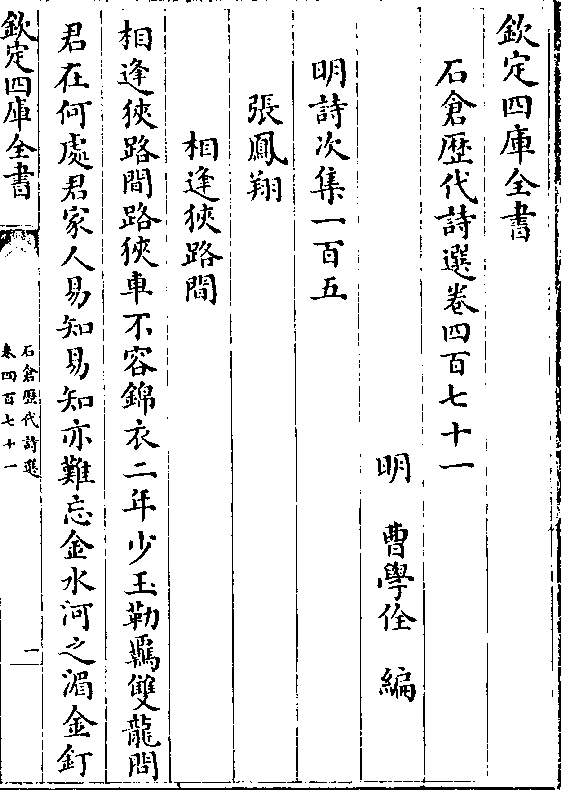 欽定四庫全書
石倉歴代詩選卷四百七十一
明 曹學佺 編
明詩次集一百五
張鳳翔
相逢狹路間
相逢狹路間路狹車不容錦衣二年少玉勒羈雙龍問
君在何處君家人易知易知亦難忘金水河之湄金釘
欽定四庫全書
石倉歴代詩選
卷四百七十一
一